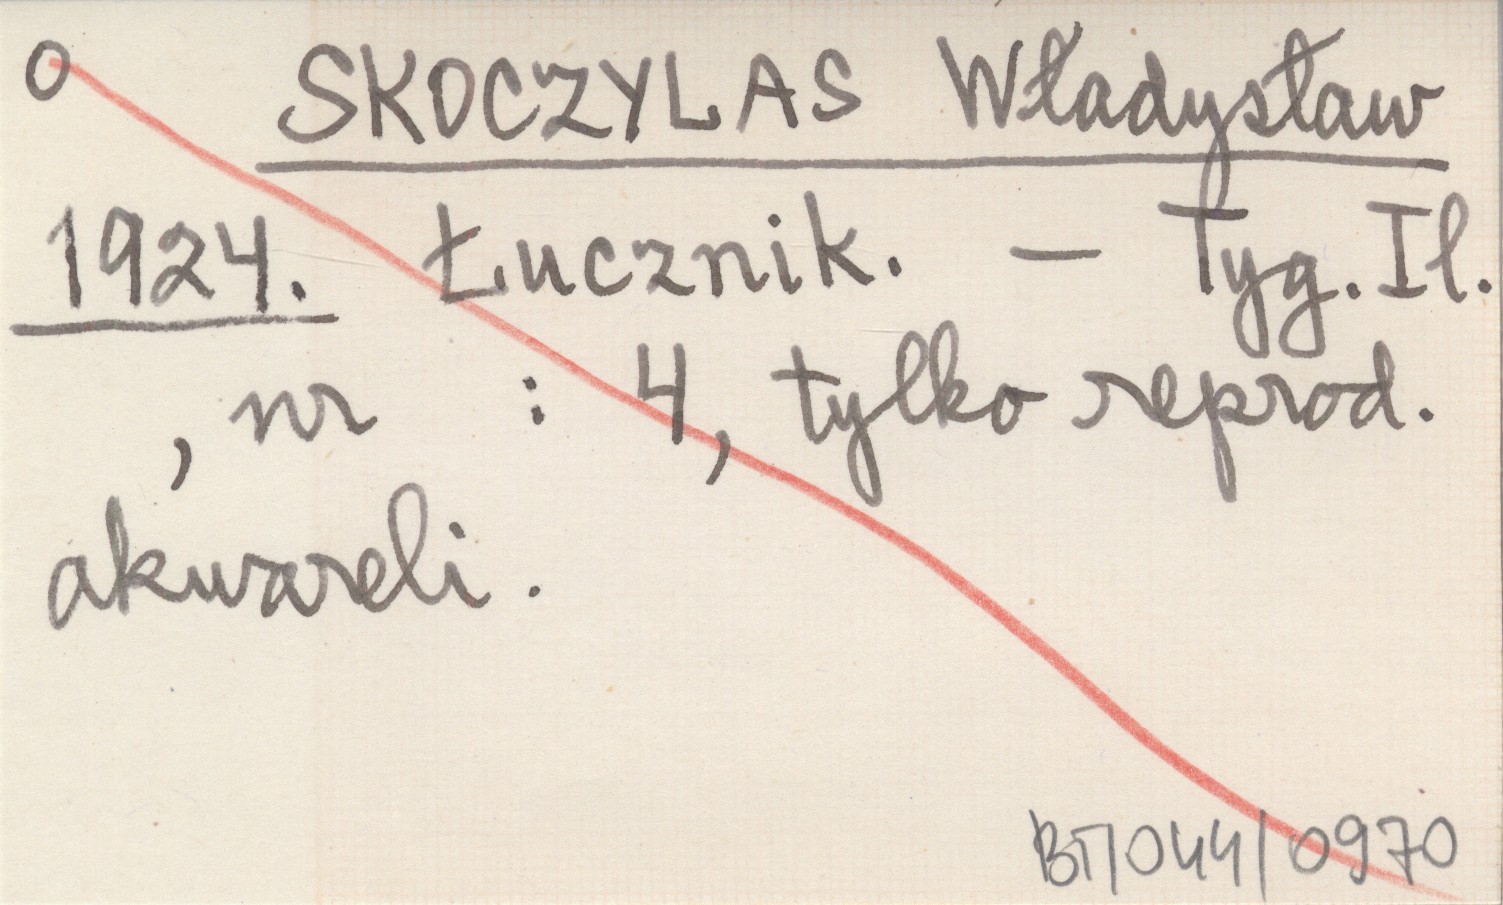 O SKOCZYLAS Władysław
1924. Łucznik. — Tyg. Il.
, nr : 4, tylko reprod.
akwareli.
BT/044/0970